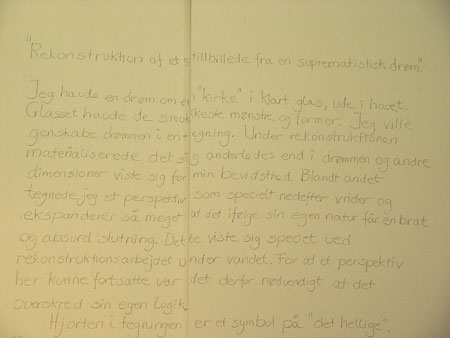 "Rekonstruktion af et stillbillede fra en suprematistisk drøm"
Jeg havde en drøm om en "kirke" i klart glas, ude i havet.
Glasset havde de smukkeste mønstre og former. Jeg ville
genskabe drømmen i en tegning. Under rekonstruktionen
materialiserede det sig anderledes end i drømmen og andre
dimensioner viste sig for min bevidsthed. Blandt andet
tegnede jeg et perspektiv som specielt nedefter under og
ekspanderer så meget at det ifølge sin egen natur får en brat
og absurd slutning. Dette viste sig speciet ved
rekonstruktionsarbejdet under vandet. For at et perspektiv
her kunne fortsatte var det derfor nødvendigt at det
overskred sin egen logik.
Hjorten i tegningen er et symbol på "det hellige".